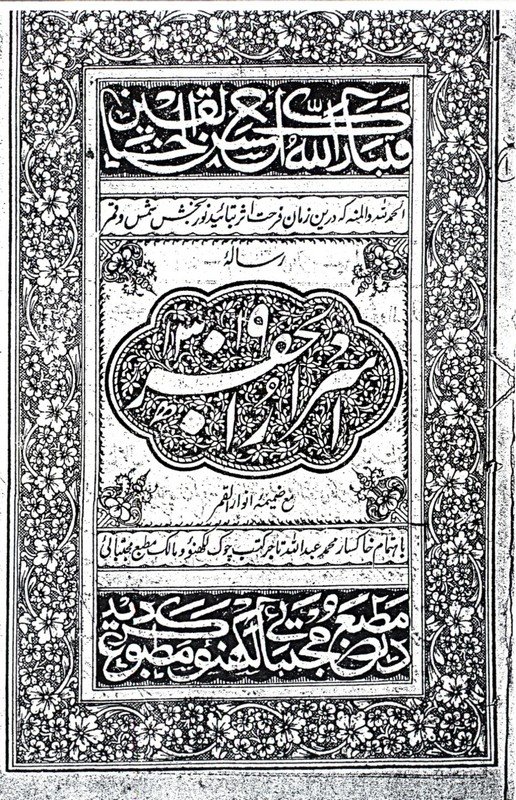 فتبارک اللہ احسن الخالقین
الحمد للہ والمنہ کہ درین زمان فرحت اثر بتائید نور بخش شمس و قمر
رسالۂ
اسرار الجفر
۱۳۰۹ھ
مع ضمیمہ انوار القمر
باہتمام خاکسار محمد عبد اللہ تاجر کتب چوک لکھنؤ و مالک مطبع مجتبائی
در مطبع مجتبائی لکھنؤ مطبوع گردید